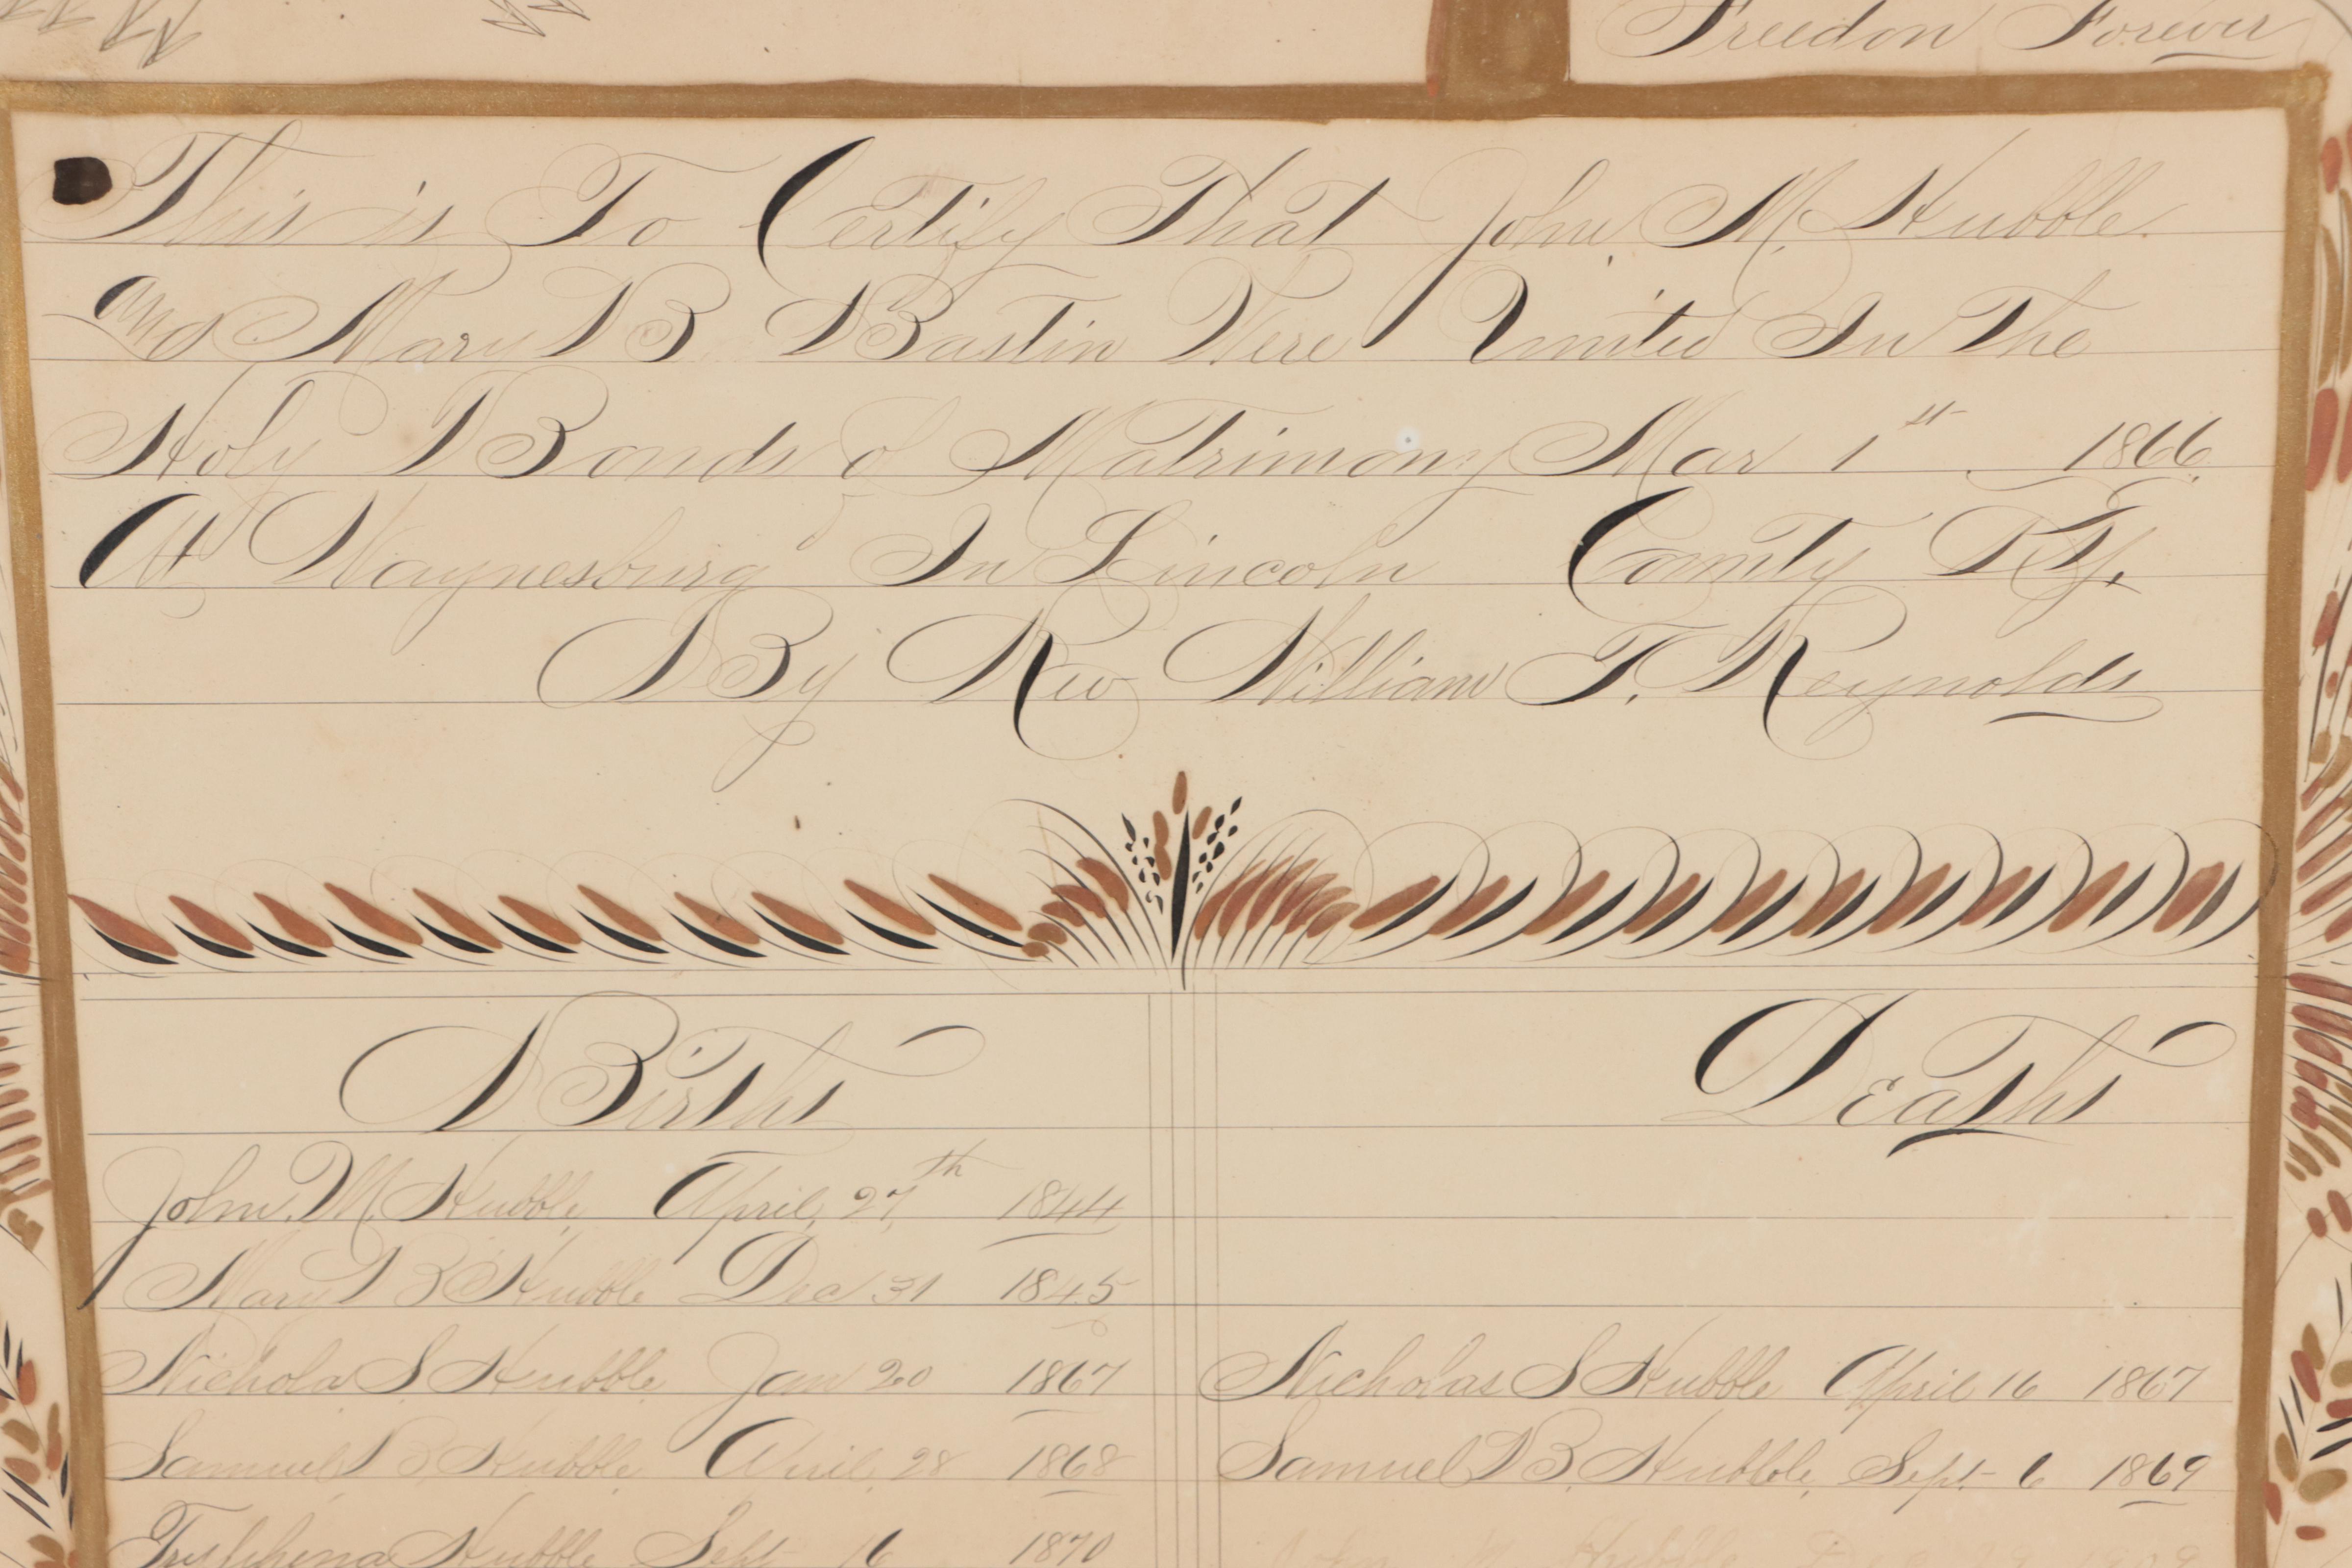 Freedon Forever
This is To Certify That John M. Hubble.
And Mary B Bastin Were United In The
Holy Bonds of Matrimony Mar 1st 1866.
At Waynesburg In Lincoln County Ky.
By Rev William T. Reynolds
Births
Deaths
John. M. Hubble, April, 27th 1844
Mary B Hubble Dec 31 1845
Nicholas S Hubble Jan 20 1867
Nicholas S Hubble April 16 1867
Samuel B Hubble, April, 28 1868
Samuel B. Hubble, Sept 6 1869
Hubble Sept 16 1870
John M Hubble Dec